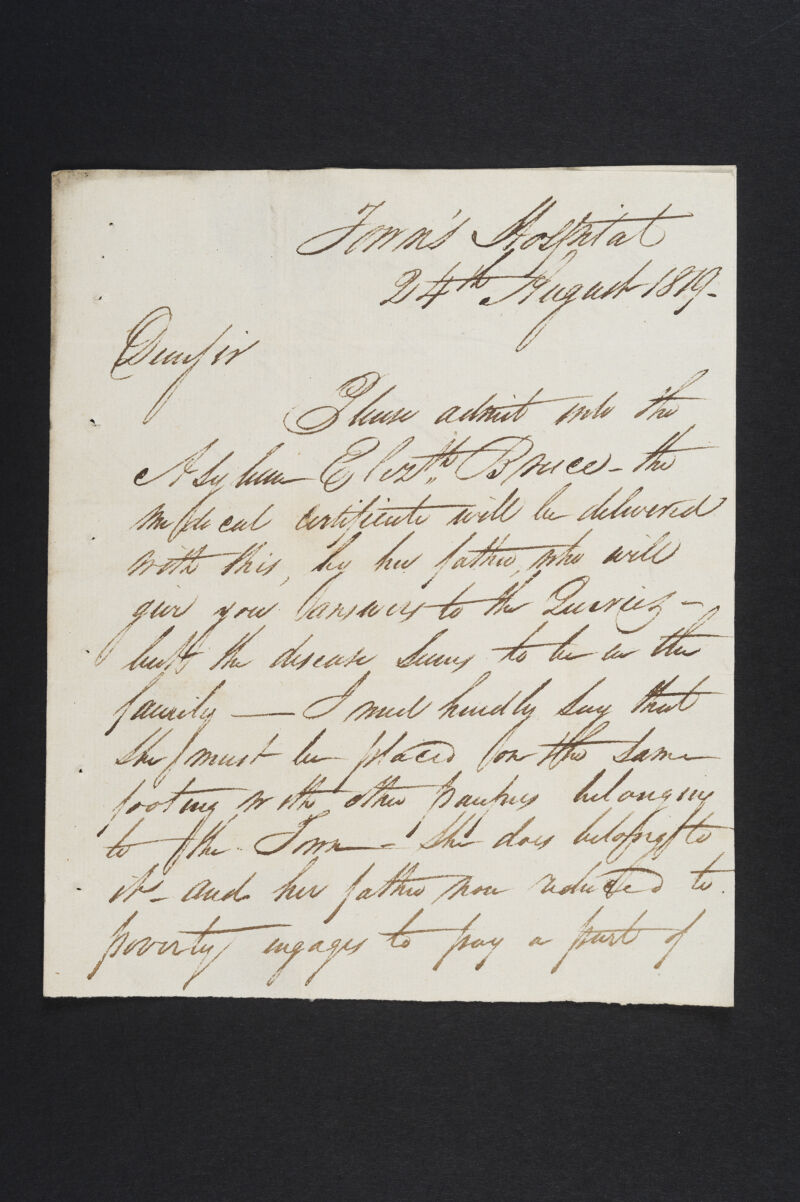 Town's Hospital
24th August 1819.
Dear Sir
Please admit into the
Asylum Elizth. Bruce - the
medical certificate will be delivered
with this, by her father, who will
give you answers to the Queries -
but the disease seems to be in the
family — I need hardly say that
she must be placed on the same
footing with other paupers belonging
to the Town - she does belong to
it - and her father now reduced to
poverty engages to pay a part of